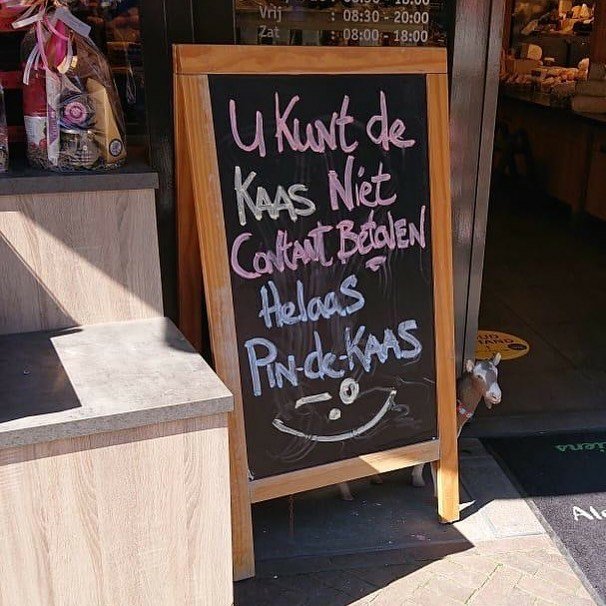 Vrij : 08:30 - 20:00
Zat : 08:00 - 18:00
U Kunt de
KAAS Niet
Contant Betalen
Helaas
Pin-de-KAAS